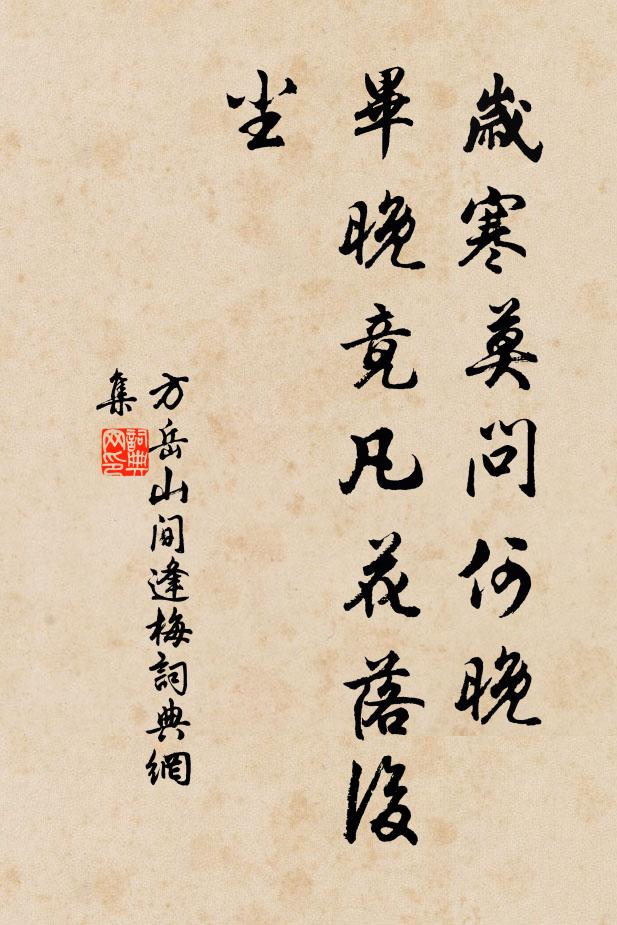 歲寒莫問何晚
畢晚竟凡花落後
坐
方岳山間逢梅詞典網
集
詞典
网印